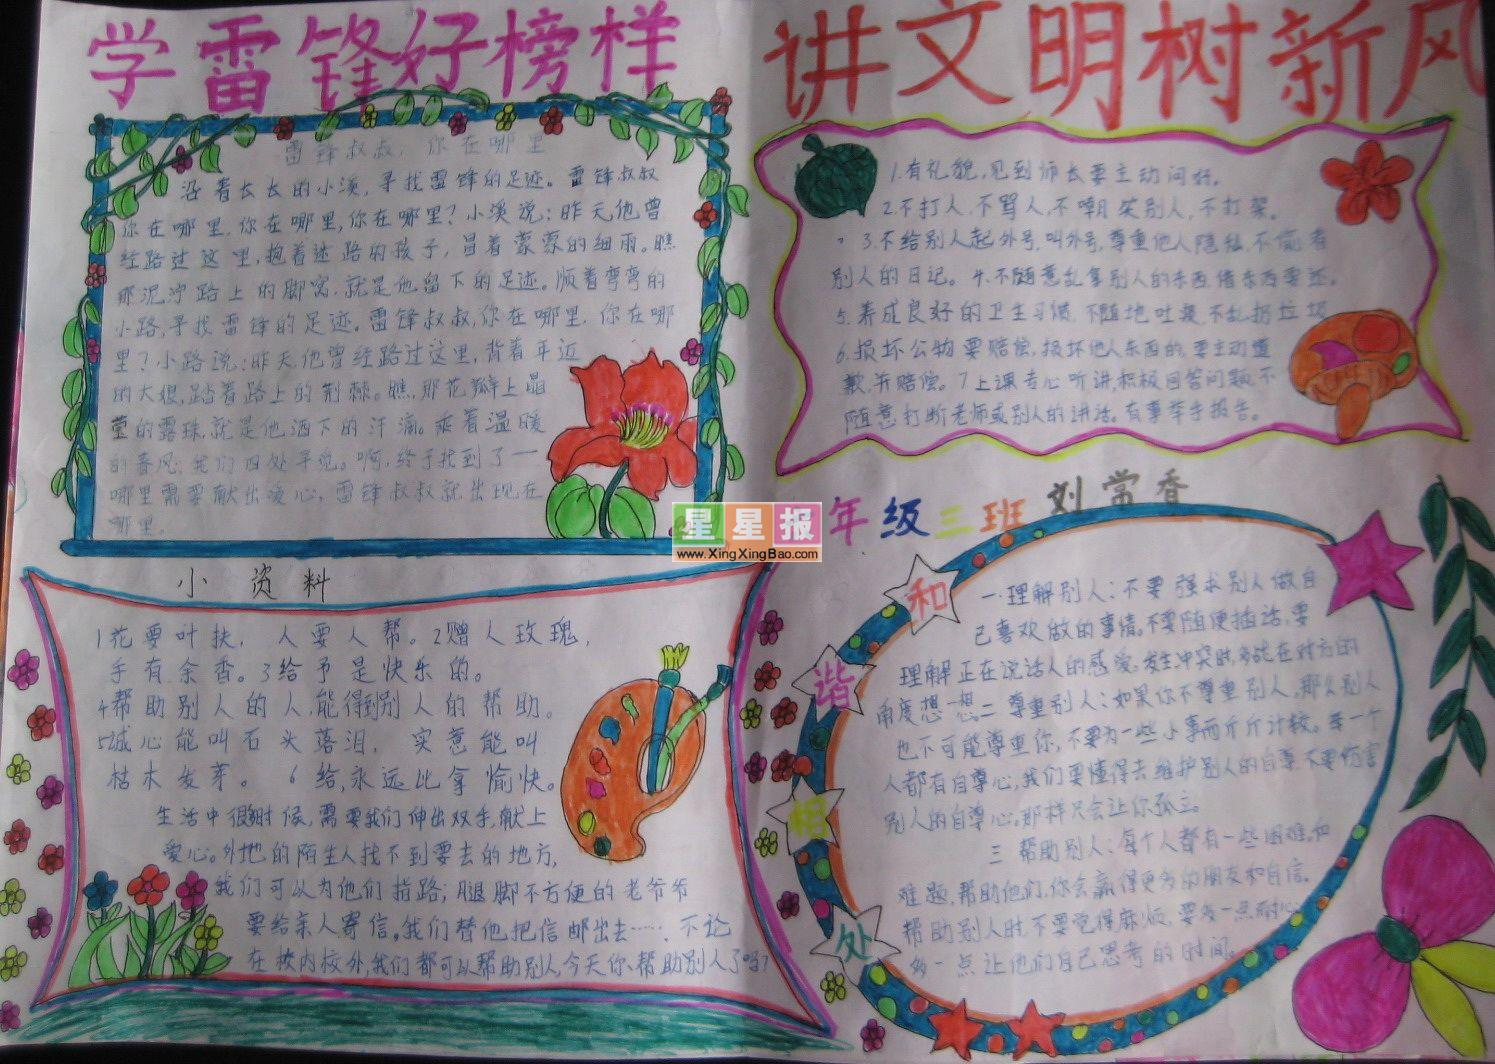 学雷锋好榜样
讲文明树新风
雷锋叔叔，你在哪里
沿着长长的小溪，寻找雷锋的足迹。雷锋叔叔
你在哪里，你在哪里，你在哪里？小溪说：昨天他曾
经路过这里，抱着迷路的孩子，冒着蒙蒙的细雨。瞧
那泥泞路上的脚窝，就是他留下的足迹。顺着弯弯的
小路，寻找雷锋的足迹。雷锋叔叔，你在哪里，你在哪
里？小路说：昨天，他曾经路过这里，背着年迈
的大娘，踏着路上的荆棘。瞧，那花瓣上晶
莹的露珠，就是他洒下的汗滴。乘着温暖
的春风，我们四处寻觅。啊，终于找到了一
哪里需要献出爱心，雷锋叔叔就出现在
哪里。
1.有礼貌，见到师长要主动问好。
2.不打人，不骂人，不嘲笑别人，不打架。
3.不给别人起外号，叫外号，尊重他人隐私，不偷看
别人的日记。4.不随意乱拿别人的东西，借东西要还。
5.养成良好的卫生习惯，不随地吐痰，不乱扔垃圾
6.损坏公物要赔偿，损坏他人东西的，要主动道
歉，并赔偿。7上课专心听讲，积极回答问题，不
随意打断老师或别人的讲话。有事举手报告。
年级三班 刘常香
星星报
www.XingXingBao.com
小资料
1花要叶扶，人要人帮。2赠人玫瑰，
手有余香。3给予是快乐的。
4帮助别人的人，能得到别人的帮助。
5诚心能叫石头落泪，实意能叫
枯木发芽。6给，永远比拿愉快。
生活中很多时候，需要我们伸出双手，献上
爱心。外地的陌生人找不到要去的地方，
我们可以为他们指路；腿脚不方便的老爷爷
要给亲人寄信，我们替他把信邮出去……不论
在校内校外，我们都可以帮助别人，今天你帮助别人了吗？
和谐相处
一.理解别人：不要强求别人做自
己喜欢做的事情。不要随便插话，要
理解正在说话人的感受。发生冲突时，多站在对方的
角度想一想。二 尊重别人：如果你不尊重别人，那么别人
也不可能尊重你，不要为一些小事而斤斤计较。每一个
人都有自尊心，我们要懂得去维护别人的自尊，不要伤害
别人的自尊心。那样只会让你孤立。
三 帮助别人：每个人都有一些困难和
难题，帮助他们，你会赢得更多的朋友和自信。
帮助别人时，不要觉得麻烦，要多一点耐心
多一点让他们自己思考的时间。